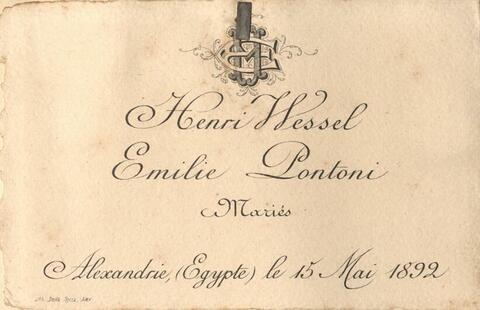 Henri Wessel
Emilie Pontoni
Mariés
Alexandrie, (Egypte) le 15 Mai 1892